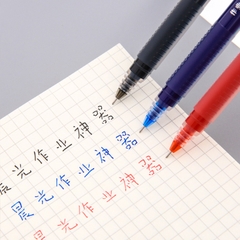 晨光作业神器
晨光作业神器
晨光作业神器